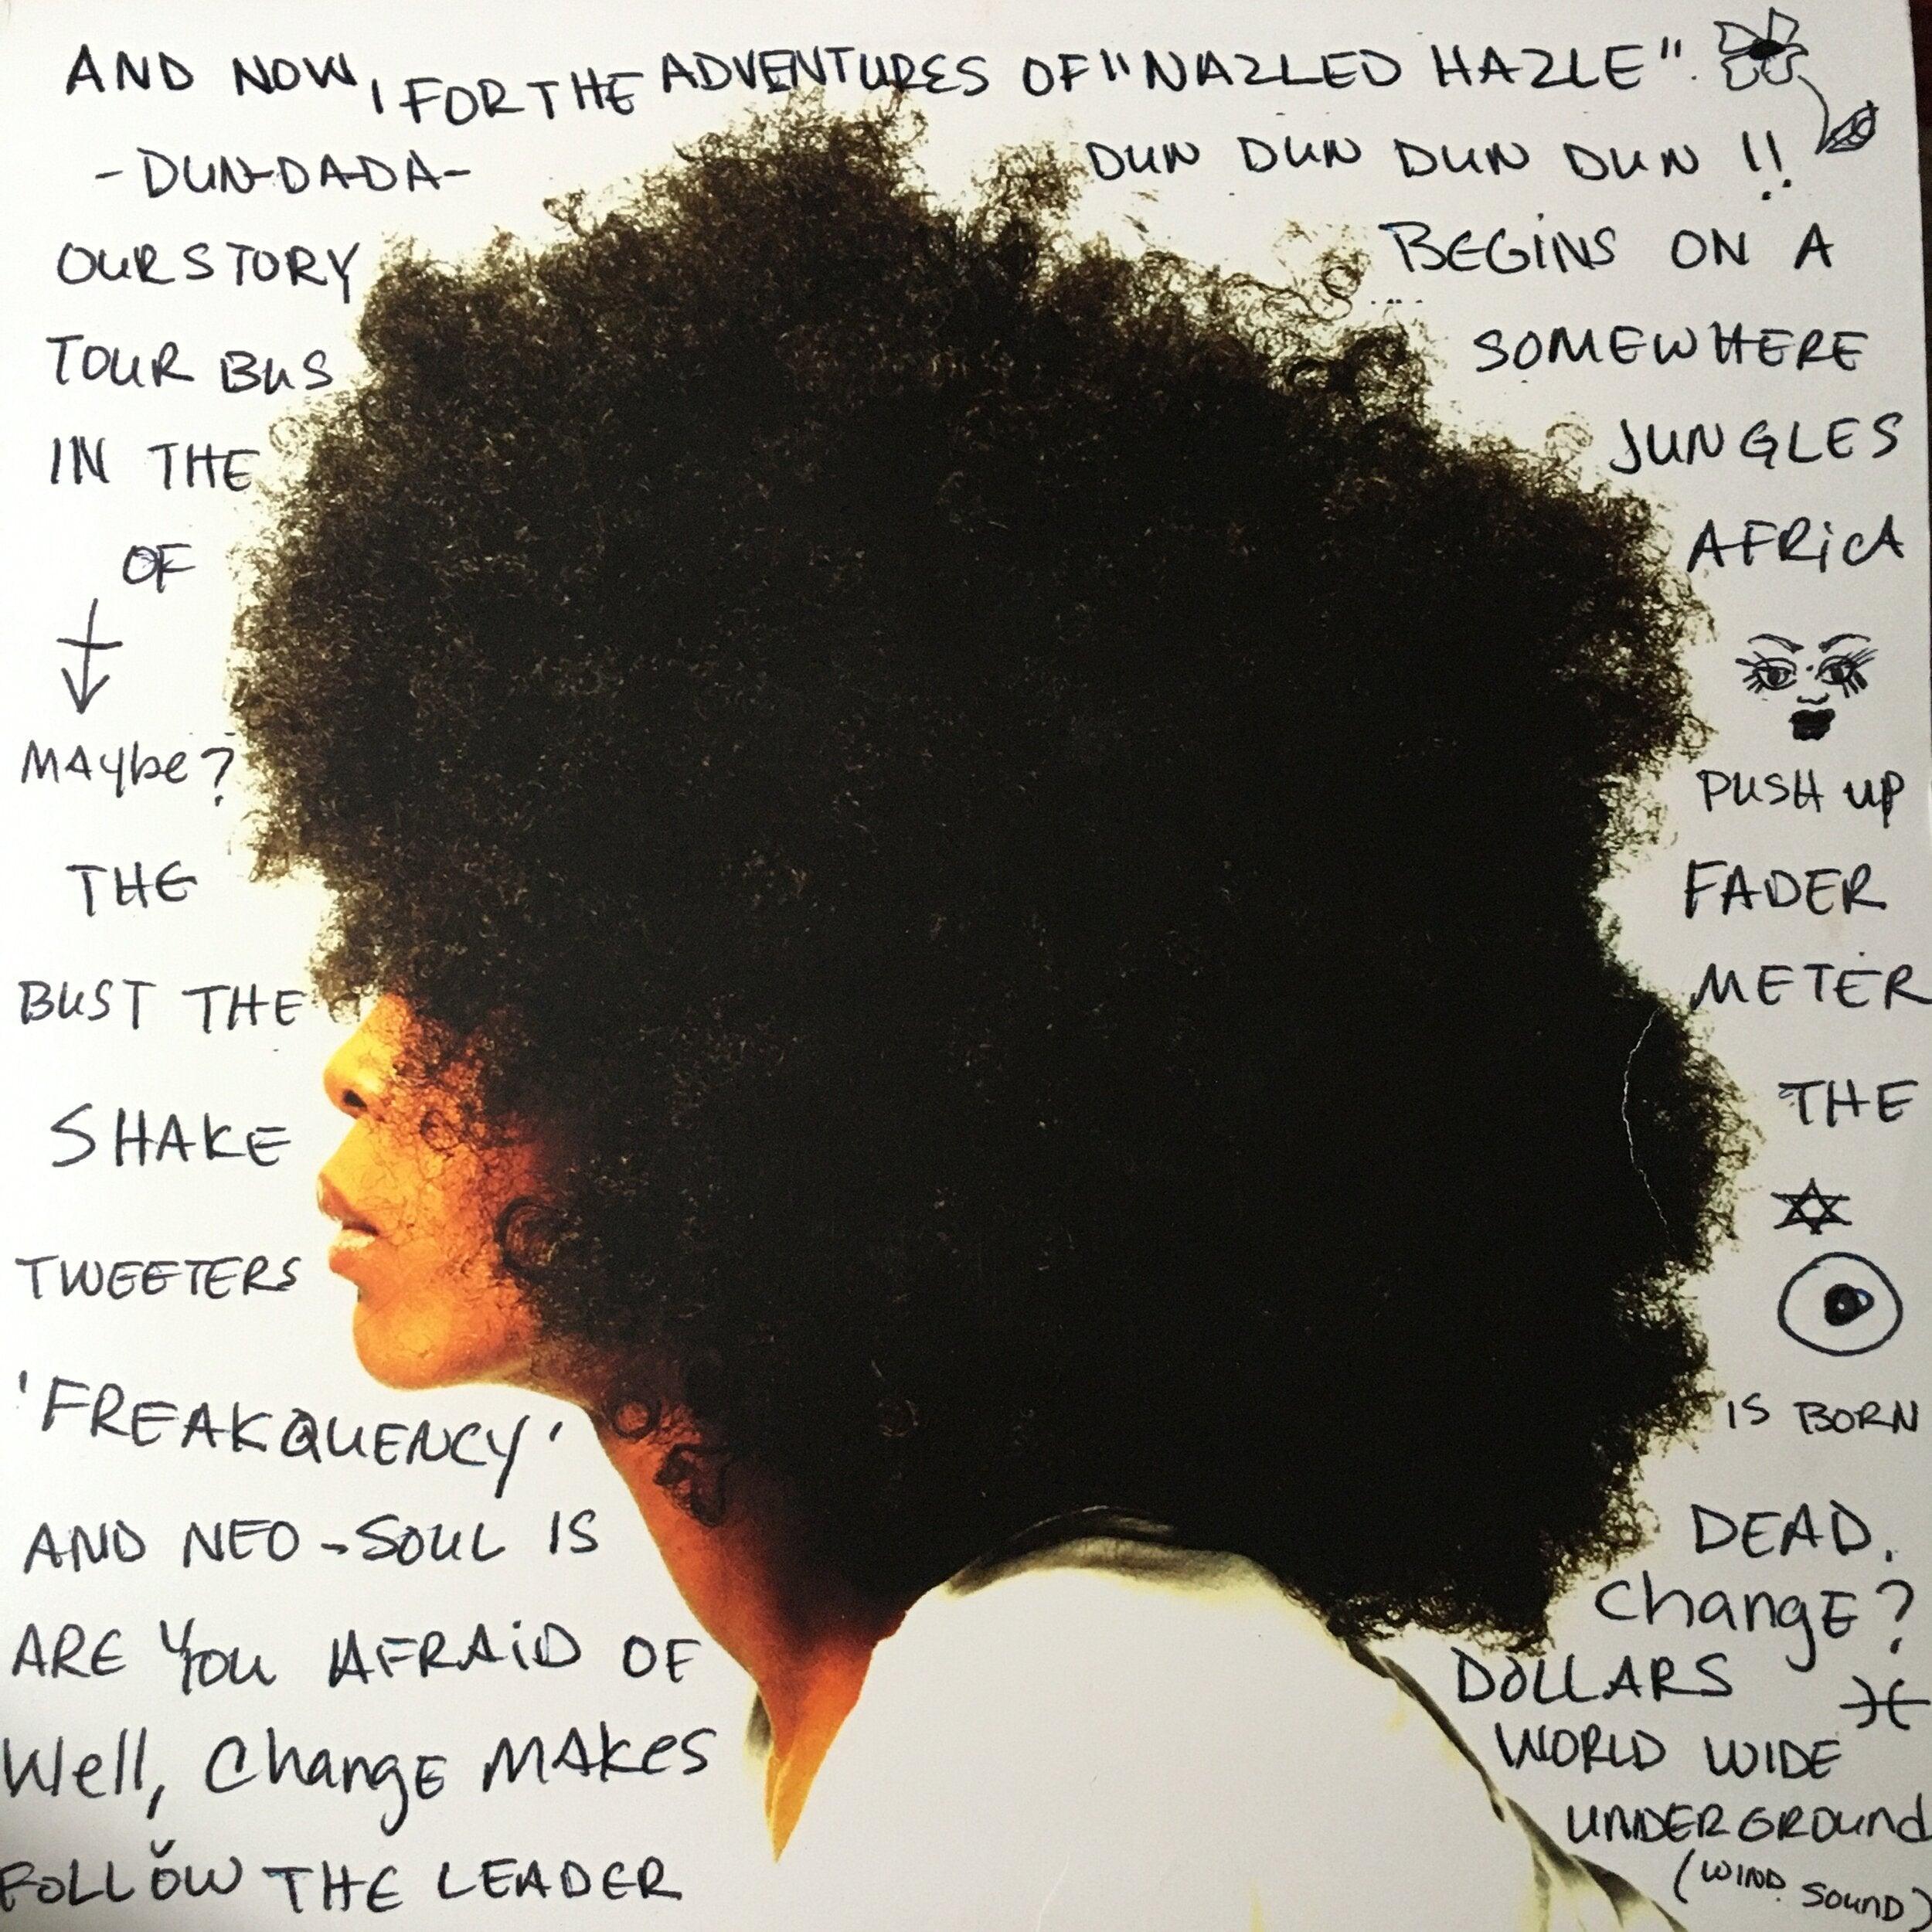 AND NOW, FOR THE ADVENTURES OF "NAZLED HAZLE".
-DUN-DA-DA- DUN DUN DUN DUN !!
OUR STORY BEGINS ON A
TOUR BUS SOMEWHERE
IN THE JUNGLES
OF AFRICA
MAybe? PUSH UP
THE FADER
BUST THE METER
SHAKE THE
TWEETERS
'FREAKQUENCY' IS BORN
AND NEO-SOUL IS DEAD.
ARE YOU AFRAID OF ChangE?
Well, ChangE MAkes DOLLARS
WORLD WIDE
FOLLOW THE LEADER UNDERGROUND
(WIND SOUND)